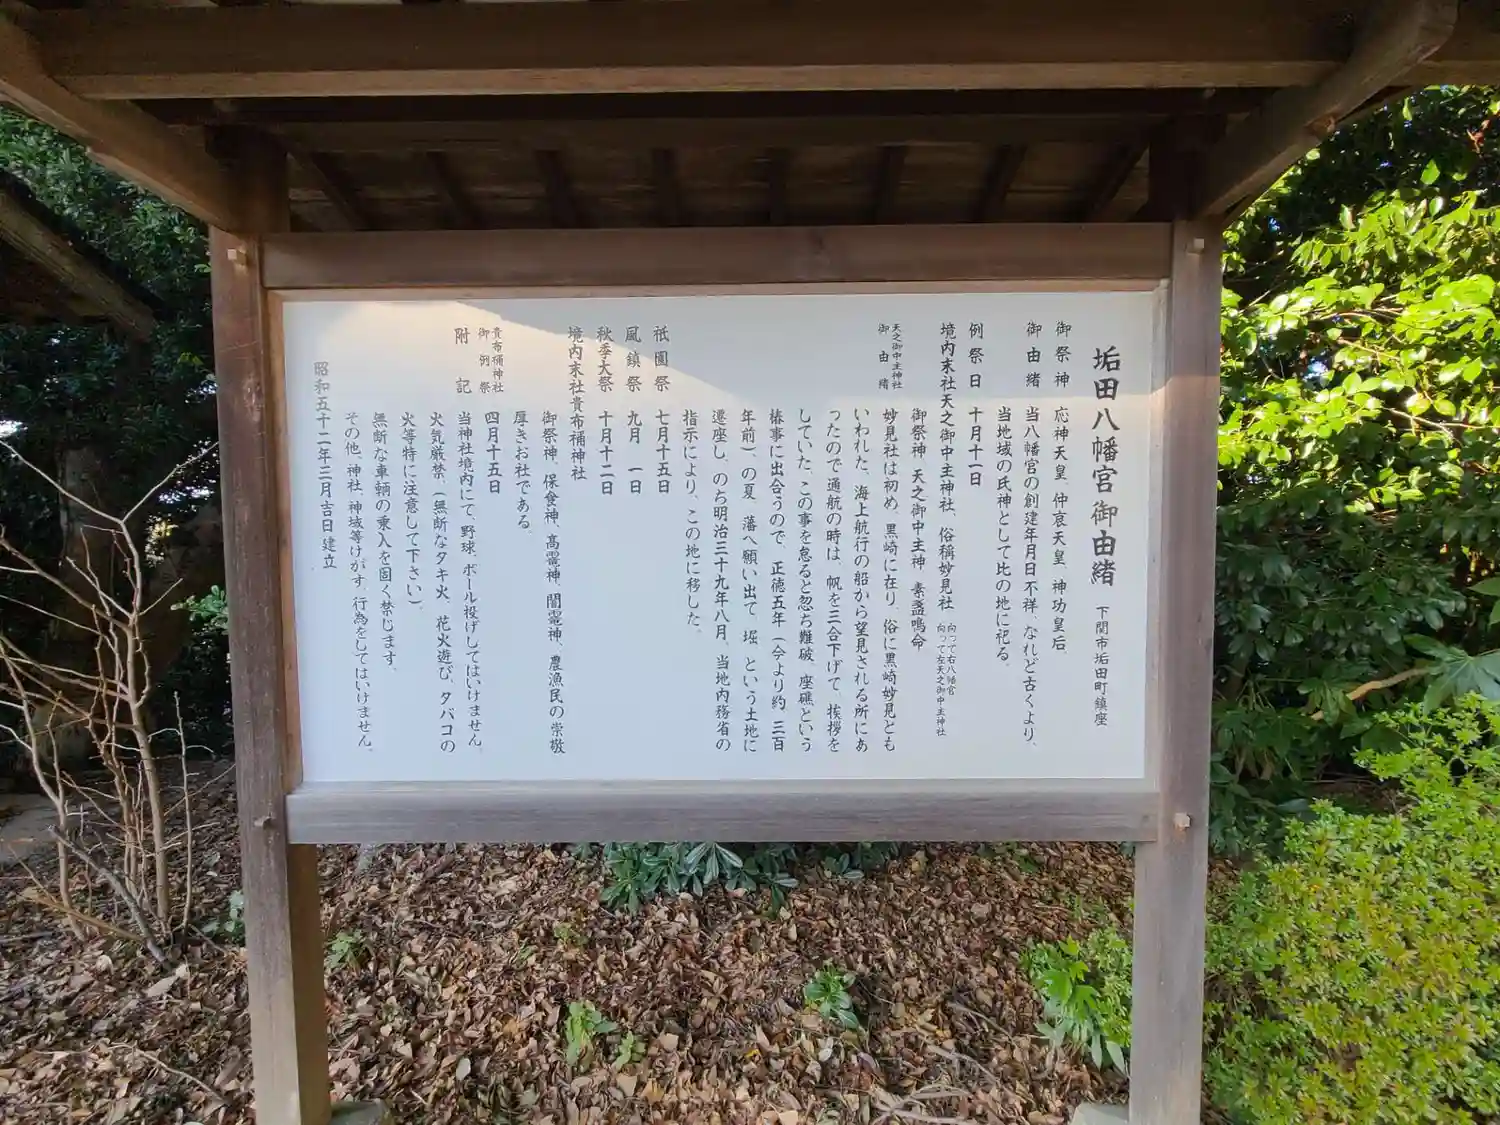 垢田八幡宮御由緒 下関市垢田町鎮座
御祭神 応神天皇、仲哀天皇、神功皇后、
御由緒 当八幡宮の創建年月日不祥、なれど古くより、
当地域の氏神として比の地に祀る。
例祭日 十月十一日
境内末社天之御中主神社、俗称妙見社 向って右八幡宮 向って左天之御中主神社
御祭神 天之御中主神 素盞鳴命
天之御中主神社 御由緒 妙見社は初め、黒崎に在り、俗に黒崎妙見とも
いわれた、海上航行の船から望見される所にあ
ったので通航の時は、帆を三合下げて、挨拶を
していた、この事を怠ると忽ち難破、座礁という
椿事に出合うので、正徳五年(今より約、三百
年前)、の夏、藩へ願い出て、堀、という土地に
遷座し、のち明治三十九年八月、当地内務省の
指示により、この地に移した。
祇園祭 七月十五日
風鎮祭 九月 一日
秋季大祭 十月十二日
境内末社貴布禰神社
御祭神、保食神、高龗神、闇龗神、農漁民の崇敬
厚きお社である。
貴布禰神社 御例祭 四月十五日
附記 当神社境内にて、野球、ボール投げしてはいけません。
火気厳禁、(無断なタキ火、花火遊び、タバコの
火等特に注意して下さい)、
無断な車輌の乗入を固く禁じます。
その他、神社、神域等けがす、行為をしてはいけません。
昭和五十二年三月吉日建立